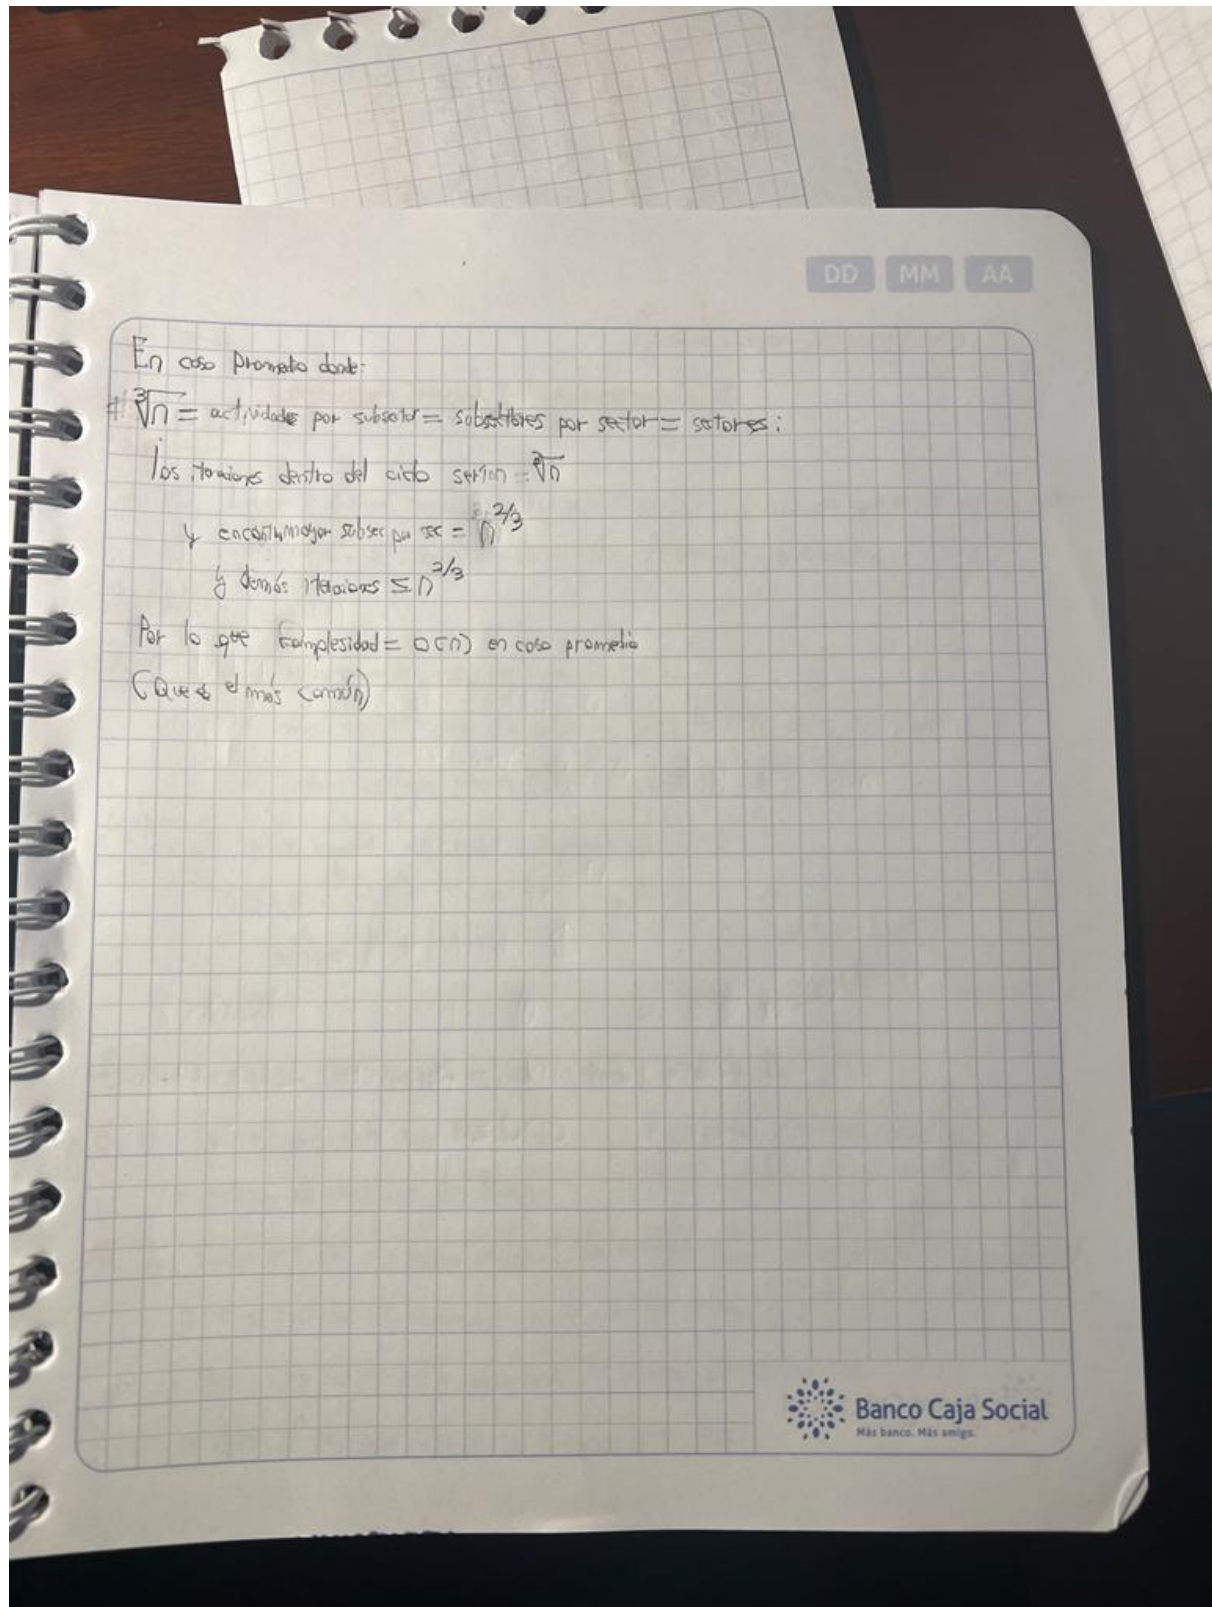 DD MM AA
En caso promedio donde:
# ∛n = actividades por subsector = subsectores por sector = sectores:
las iteraciones dentro del ciclo serían = ∛n
y mayor subsec por sec = n^2/3
y demás iteraciones ≤ n^2/3
Por lo que complesidad = O(n) en caso promedio
(Que es el más común)
Banco Caja Social
Más banco. Más amigo.